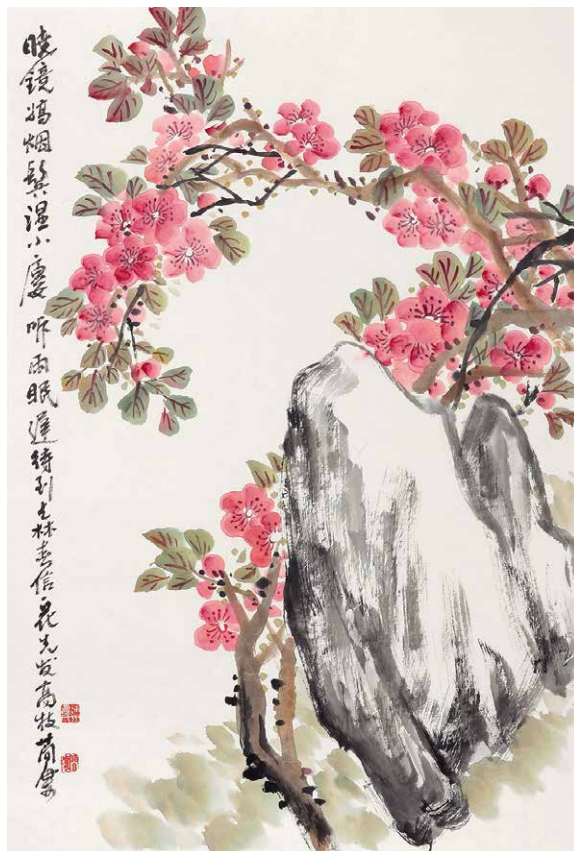 晓镜 烟鬓湿小廔听雨眠遲待到上林春信花先发高枝